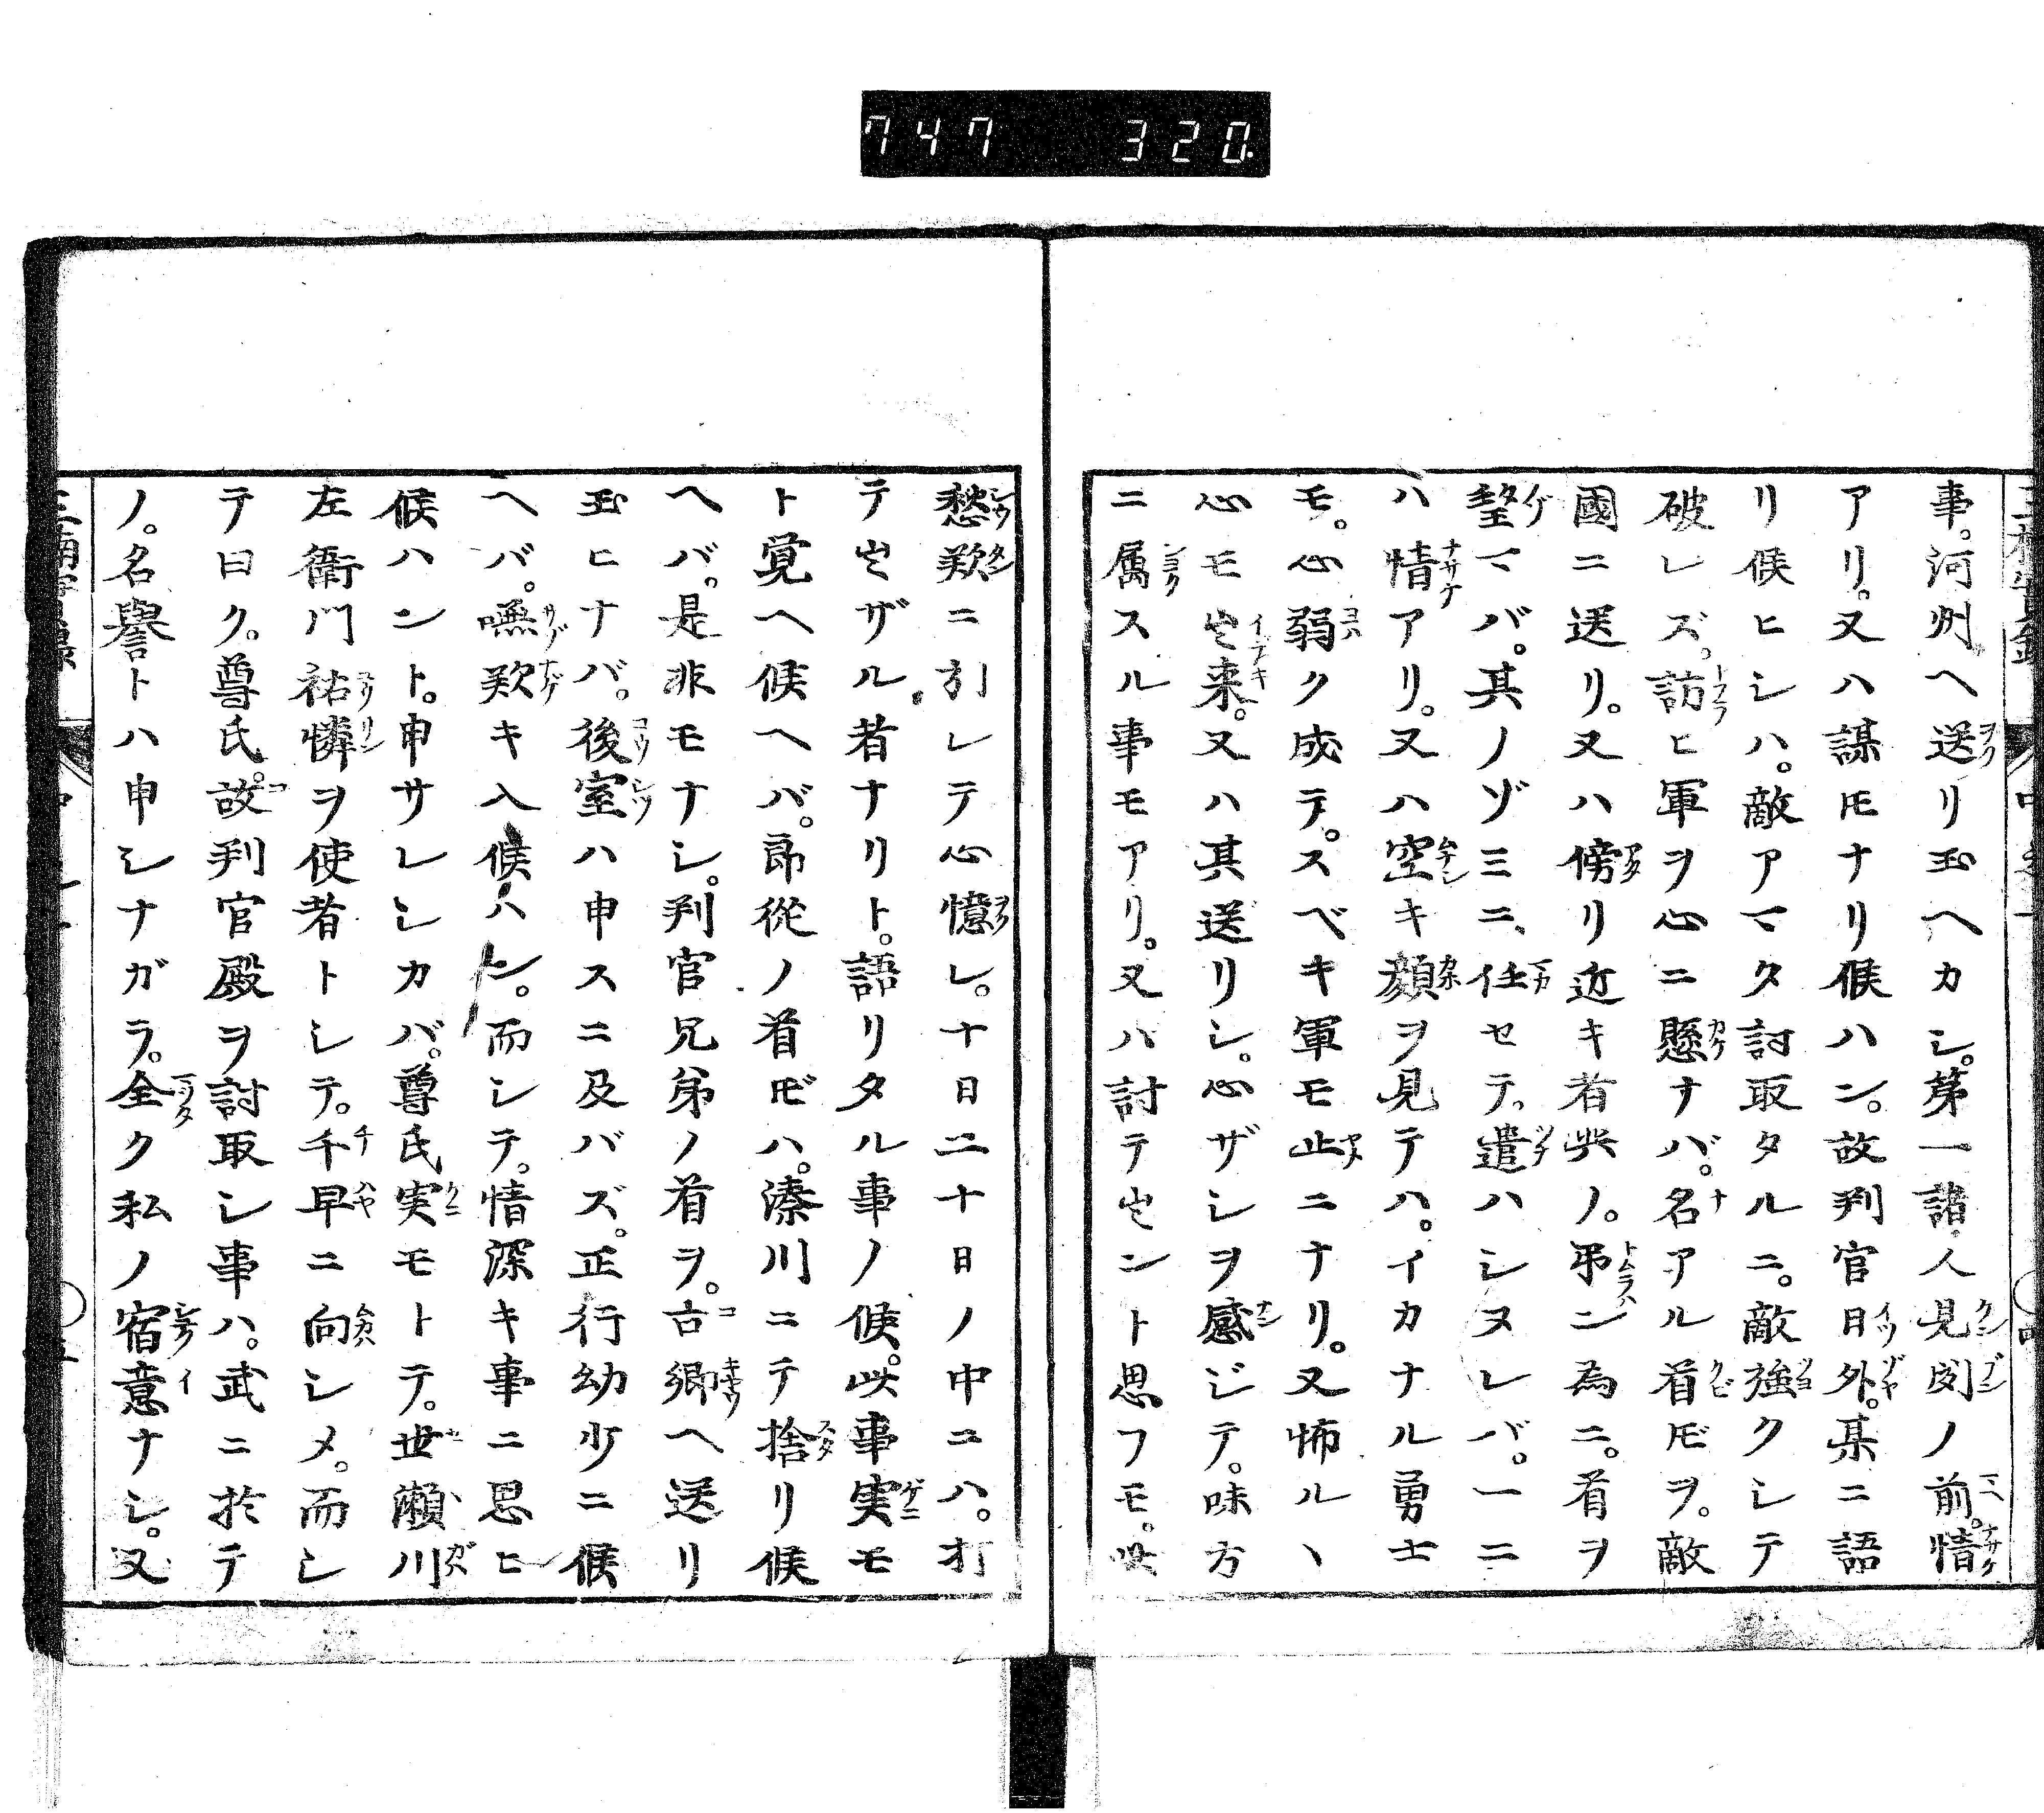 747 320.
事。河州ヘ送リ玉ヘカシ。第一諸人見聞ノ前。情
アリ。又ハ謀𪜈ナリ候ハン。故判官日外。某ニ語
リ候ヒシハ。敵アマタ討取タルニ。敵強クシテ
破レズ。訪ヒ軍ヲ心ニ懸ナバ。名アル首𪜈ヲ。敵
國ニ送リ。又ハ傍リ近キ者共ノ。弔ン為ニ。首ヲ
乞マバ。其ノゾミニ任セテ。遣ハシヌレバ。一ニ
ハ情アリ。又ハ空キ顔ヲ見テハ。イカナル勇士
モ。心弱ク成テ。スベキ軍モ止ニナリ。又怖ルヽ
心モ出来。又ハ其送リシ。心ザシヲ感ジテ。味方
ニ属スル事モアリ。又ハ討テ出ント思フモ。此
愁歎ニ引レテ心憶レ。十日二十日ノ中ニハ。打
テ出ザル者ナリト。語リタル事ノ候。此事実モ
ト覚ヘ候ヘバ。郎従ノ首𪜈ハ。湊川ニテ捨リ候
ヘバ。是非モナシ。判官兄弟ノ首ヲ。古郷ヘ送リ
玉ヒナバ。後室ハ申スニ及バズ。正行幼少ニ候
ヘバ。嘸歎キ入候ハン。而シテ。情深キ事ニ思ヒ
候ハント。申サレシカバ。尊氏実モトテ。世瀬川
左衛門祐憐ヲ使者トシテ。千早ニ向シメ。而シ
テ曰ク。尊氏。故判官殿ヲ討取シ事ハ。武ニ於テ
ノ。名譽トハ申シナガラ。全ク私ノ宿意ナシ。又